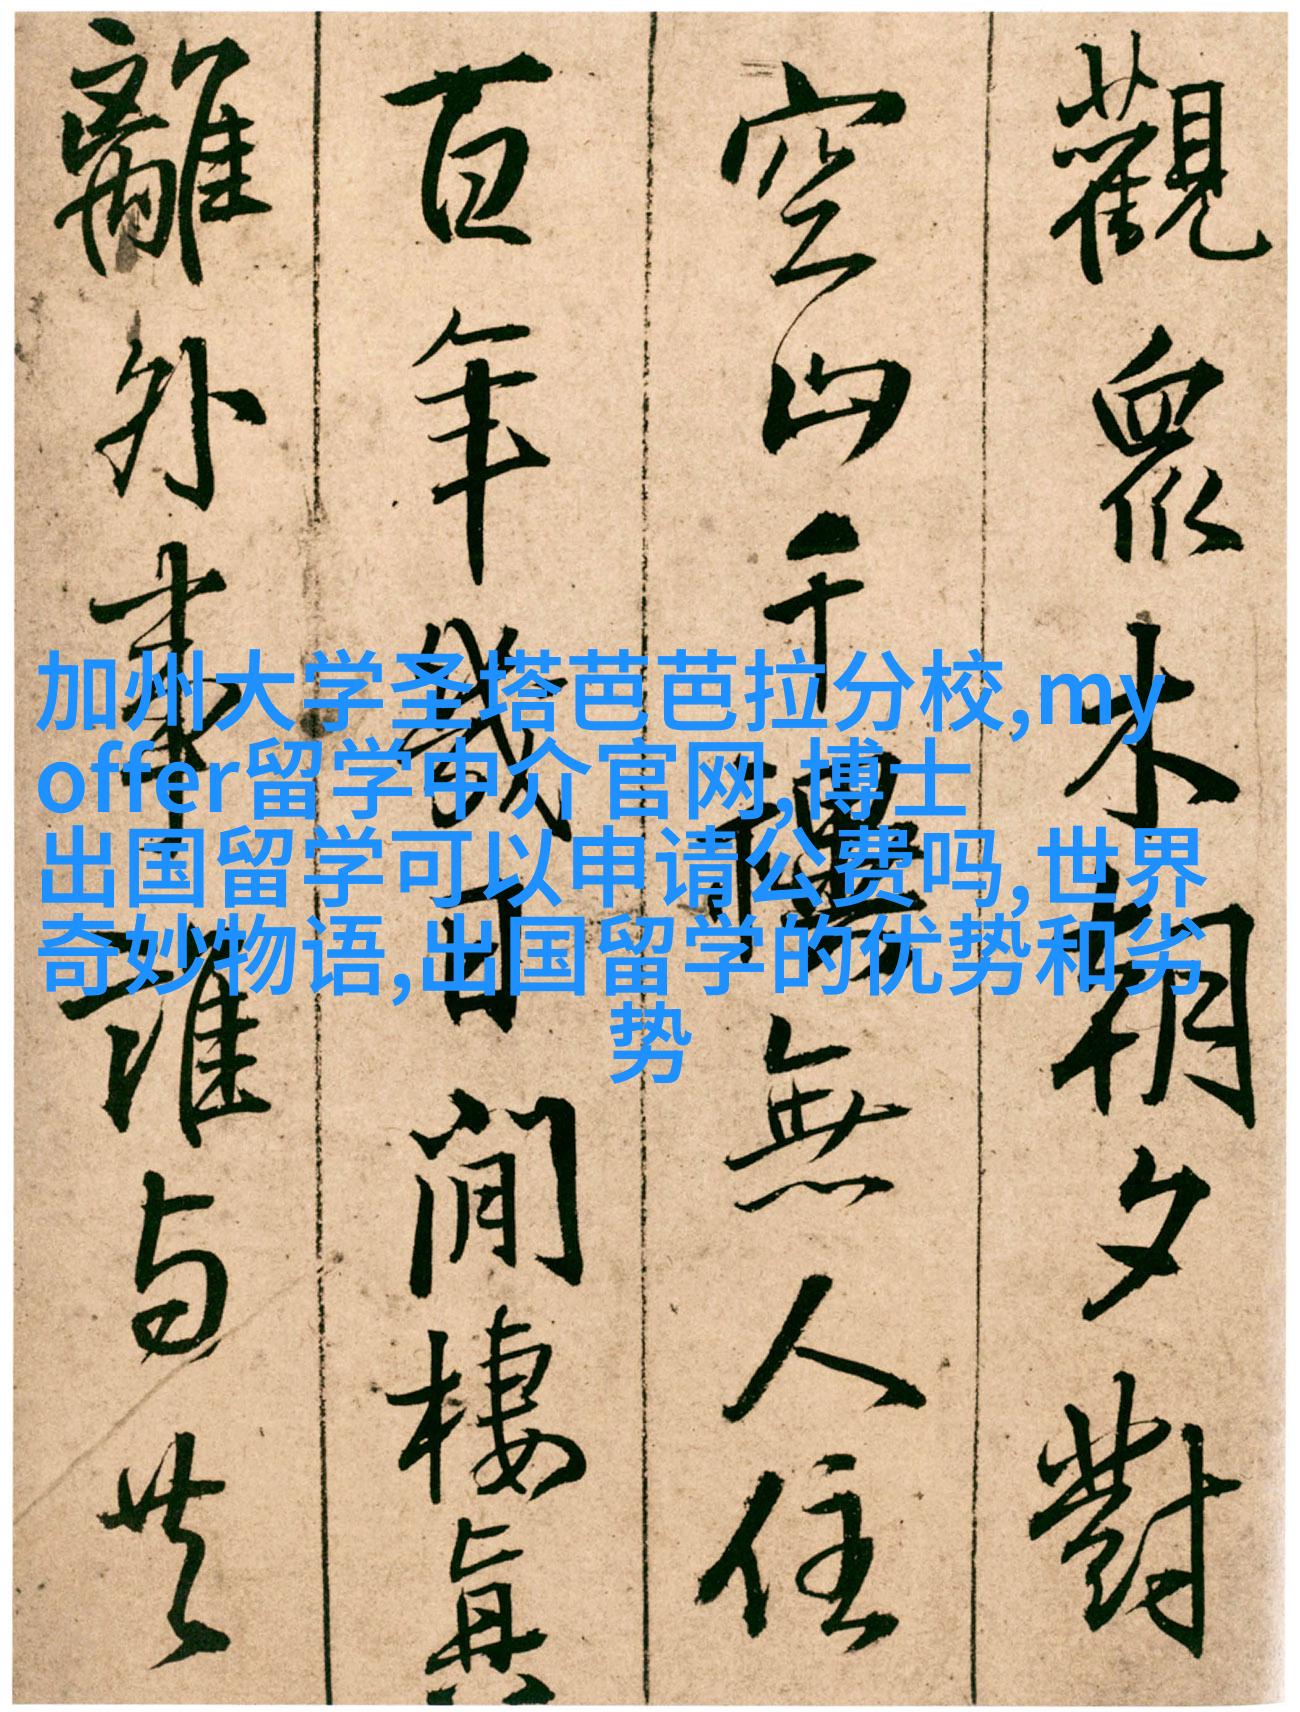 觀眾木朝夕對
空山千無人住
百年幾日閒棲真
離外事誰与共
加州大学圣塔芭芭拉分校,my
offer留学中介官网,博士
出国留学可以申请公费吗,世界
奇妙物语,出国留学的优势和劣
势